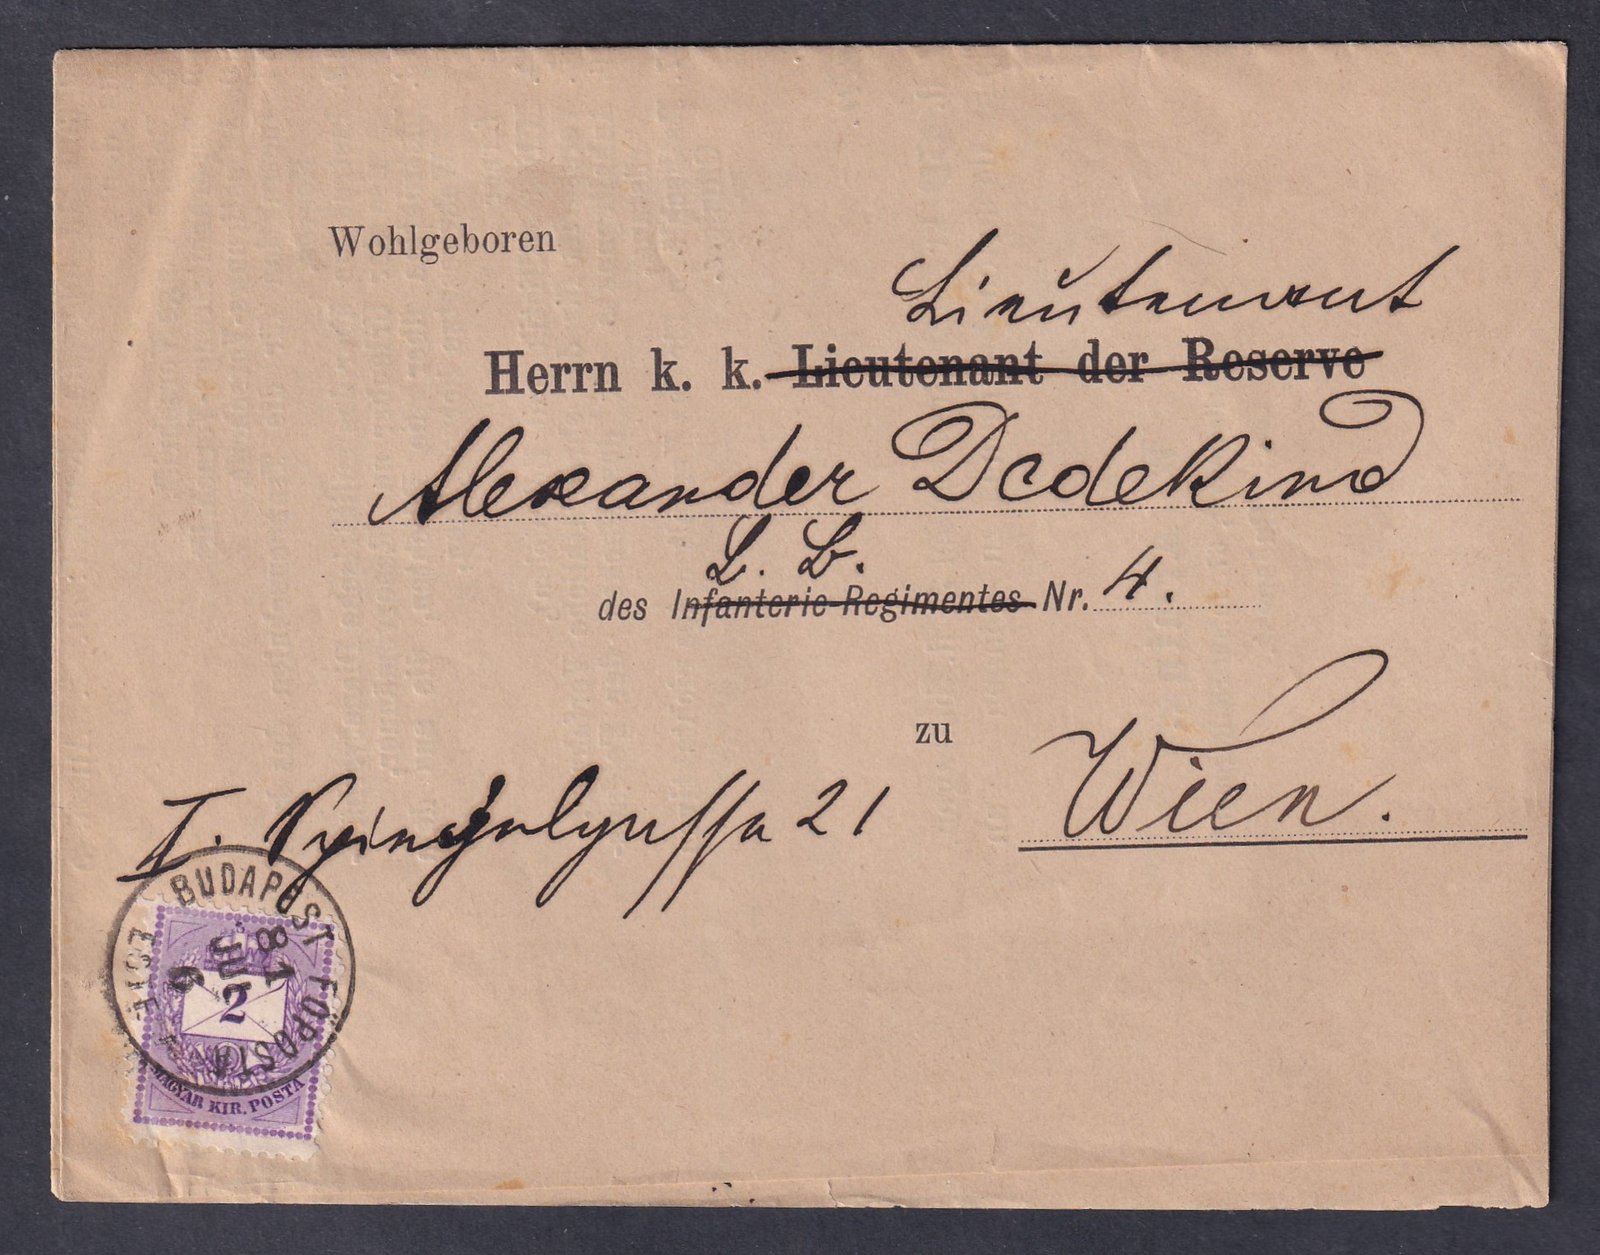 Wohlgeboren
Lieutenant
Herrn k. k. Lieutenant der Reserve
Alexander Dedekind
L. B.
des Infanterie-Regimentes Nr. 4.
zu
Wien.
I. Spiegelgasse 21
BUDAPEST FŐPOSTA
81
JUL
6
2
MAGYAR KIR. POSTA